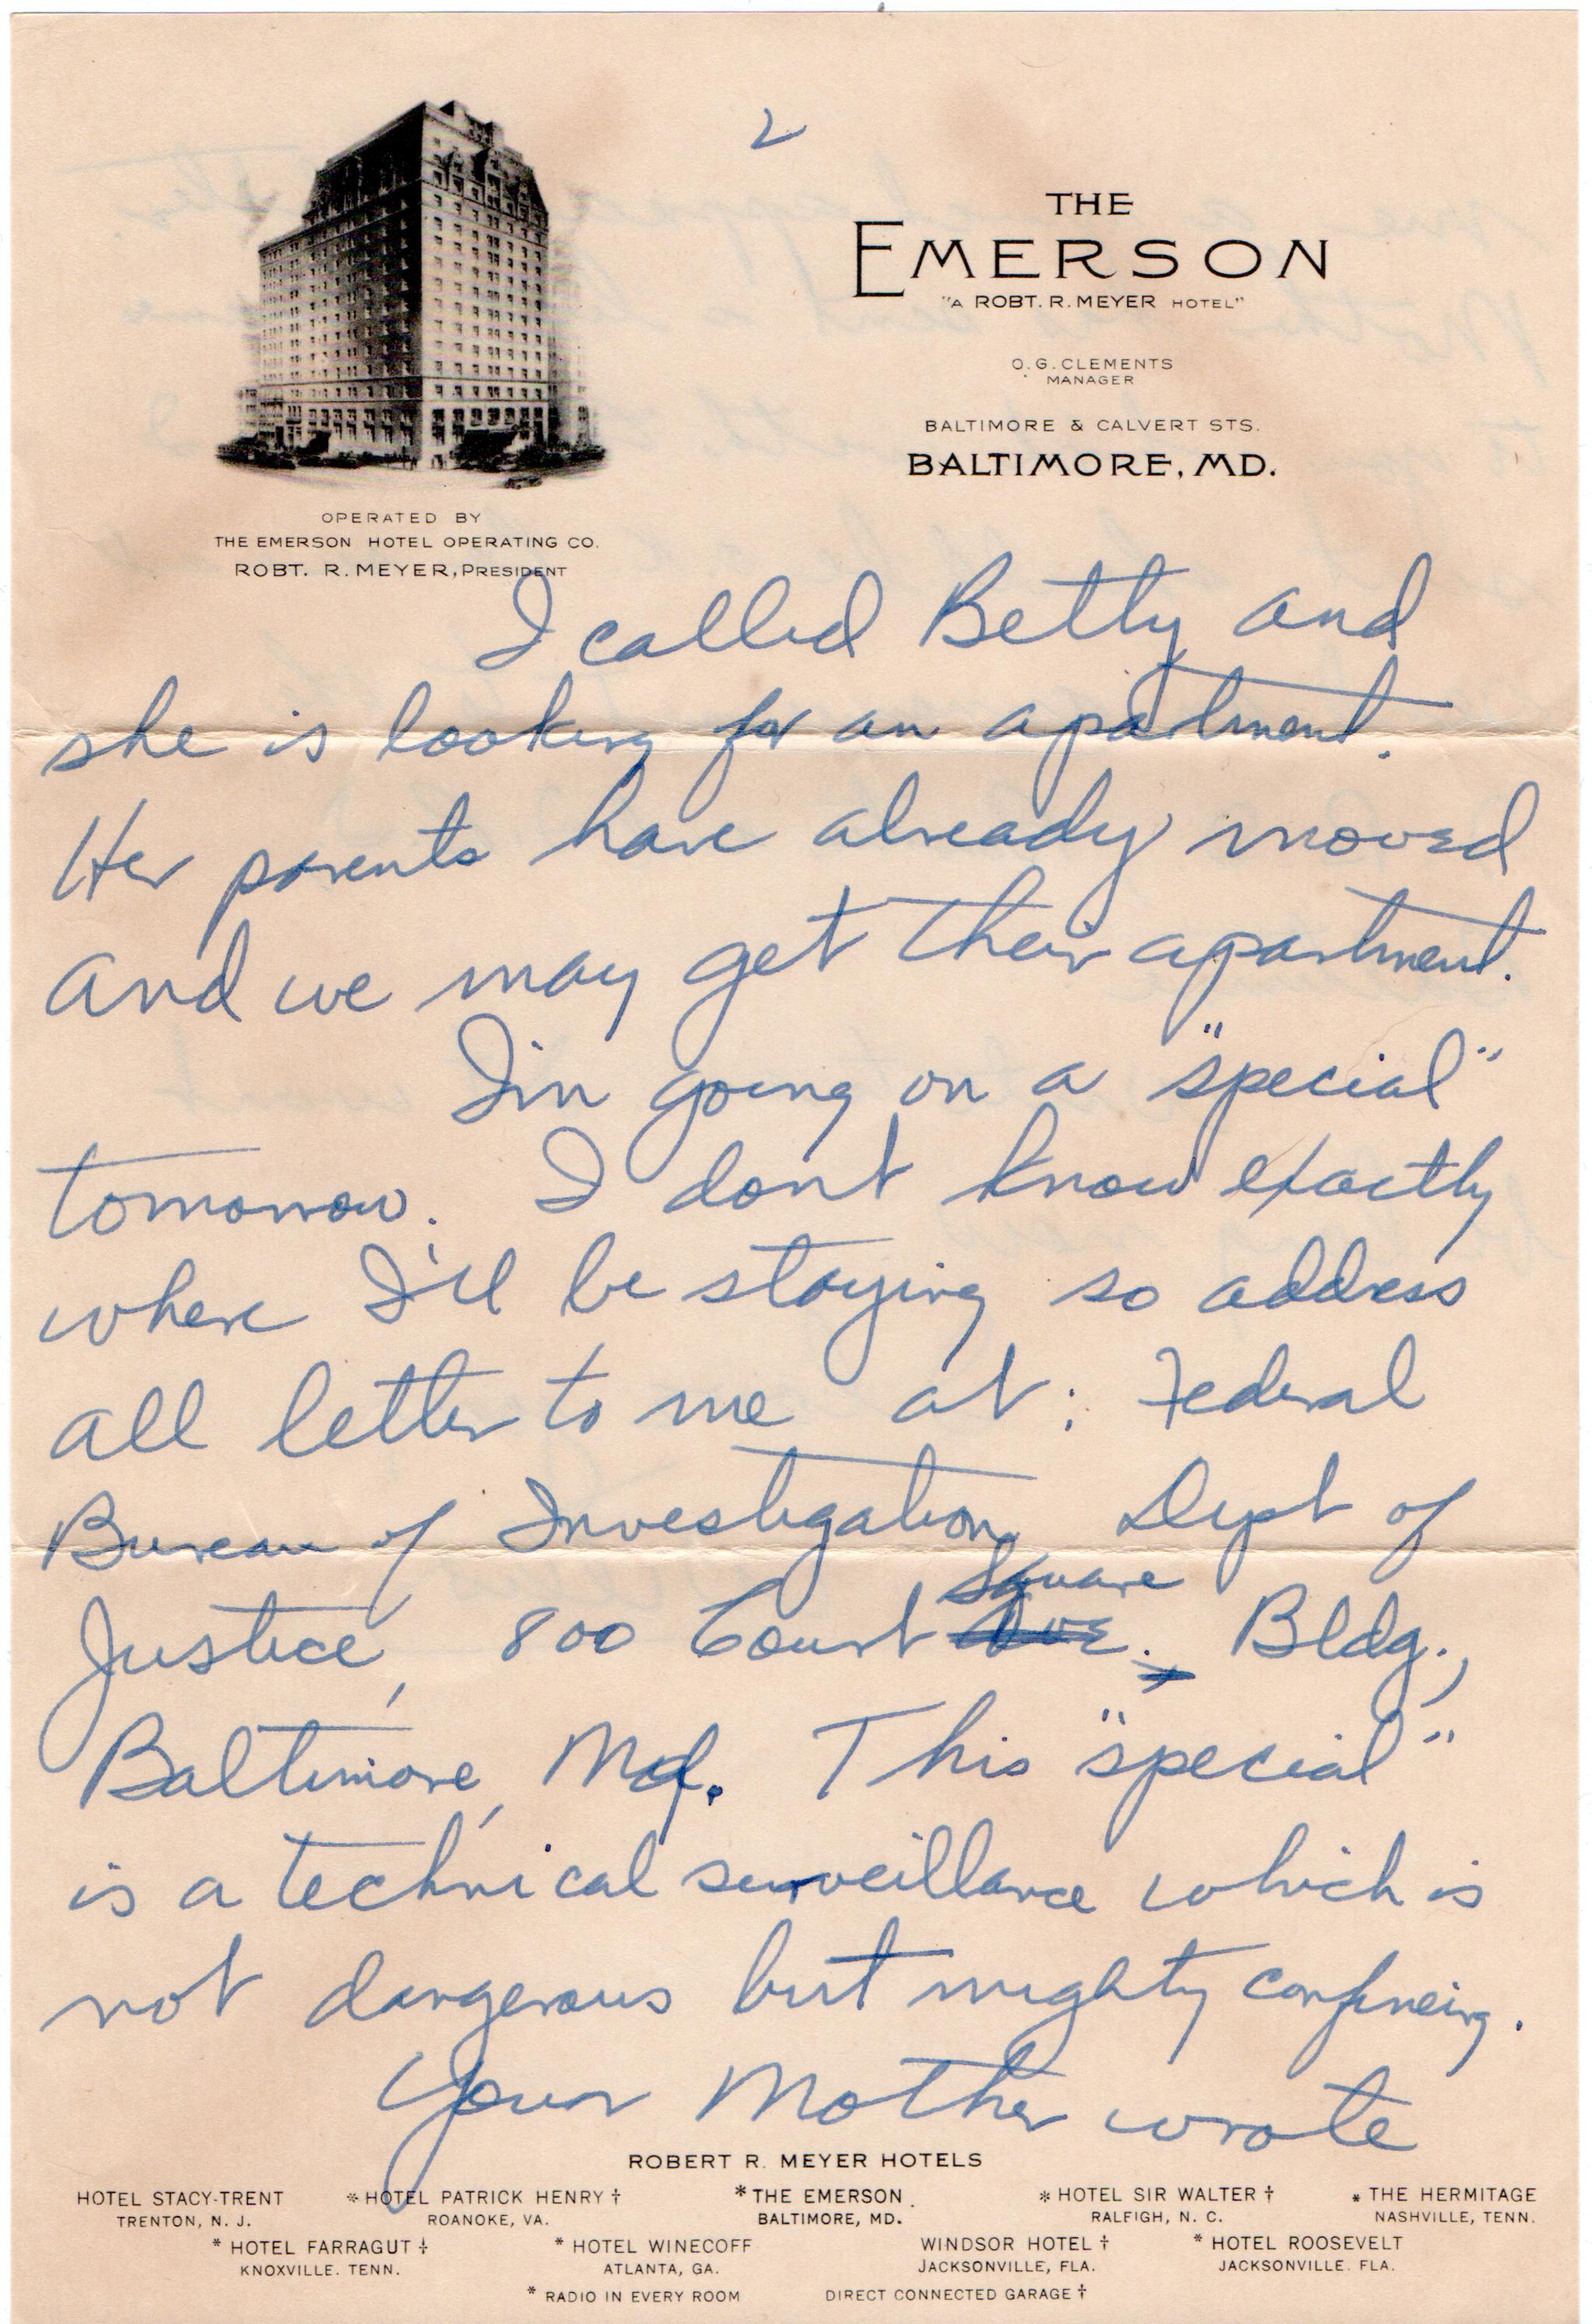 2
THE
EMERSON
"A ROBT. R. MEYER HOTEL"
O. G. CLEMENTS
MANAGER
BALTIMORE & CALVERT STS.
BALTIMORE, MD.
OPERATED BY
THE EMERSON HOTEL OPERATING CO.
ROBT. R. MEYER, PRESIDENT
I called Betty and
she is looking for an apartment.
Her parents have already moved
and we may get their apartment.
I'm going on a "special"
tomorrow. I don't know exactly
where I'll be staying so address
all letter to me at: Federal
Bureau of Investigation, Dept of
Square
Justice, 800 Court Ave. Bldg.,
Baltimore, Md. This "special"
is a technical surveillance which is
not dangerous but mighty confineing.
Your Mother wrote
ROBERT R. MEYER HOTELS
HOTEL STACY-TRENT * HOTEL PATRICK HENRY † * THE EMERSON * HOTEL SIR WALTER † * THE HERMITAGE
TRENTON, N. J. ROANOKE, VA. BALTIMORE, MD. RALEIGH, N. C. NASHVILLE, TENN.
* HOTEL FARRAGUT † * HOTEL WINECOFF WINDSOR HOTEL † * HOTEL ROOSEVELT
KNOXVILLE. TENN. ATLANTA, GA. JACKSONVILLE, FLA. JACKSONVILLE. FLA.
* RADIO IN EVERY ROOM DIRECT CONNECTED GARAGE †